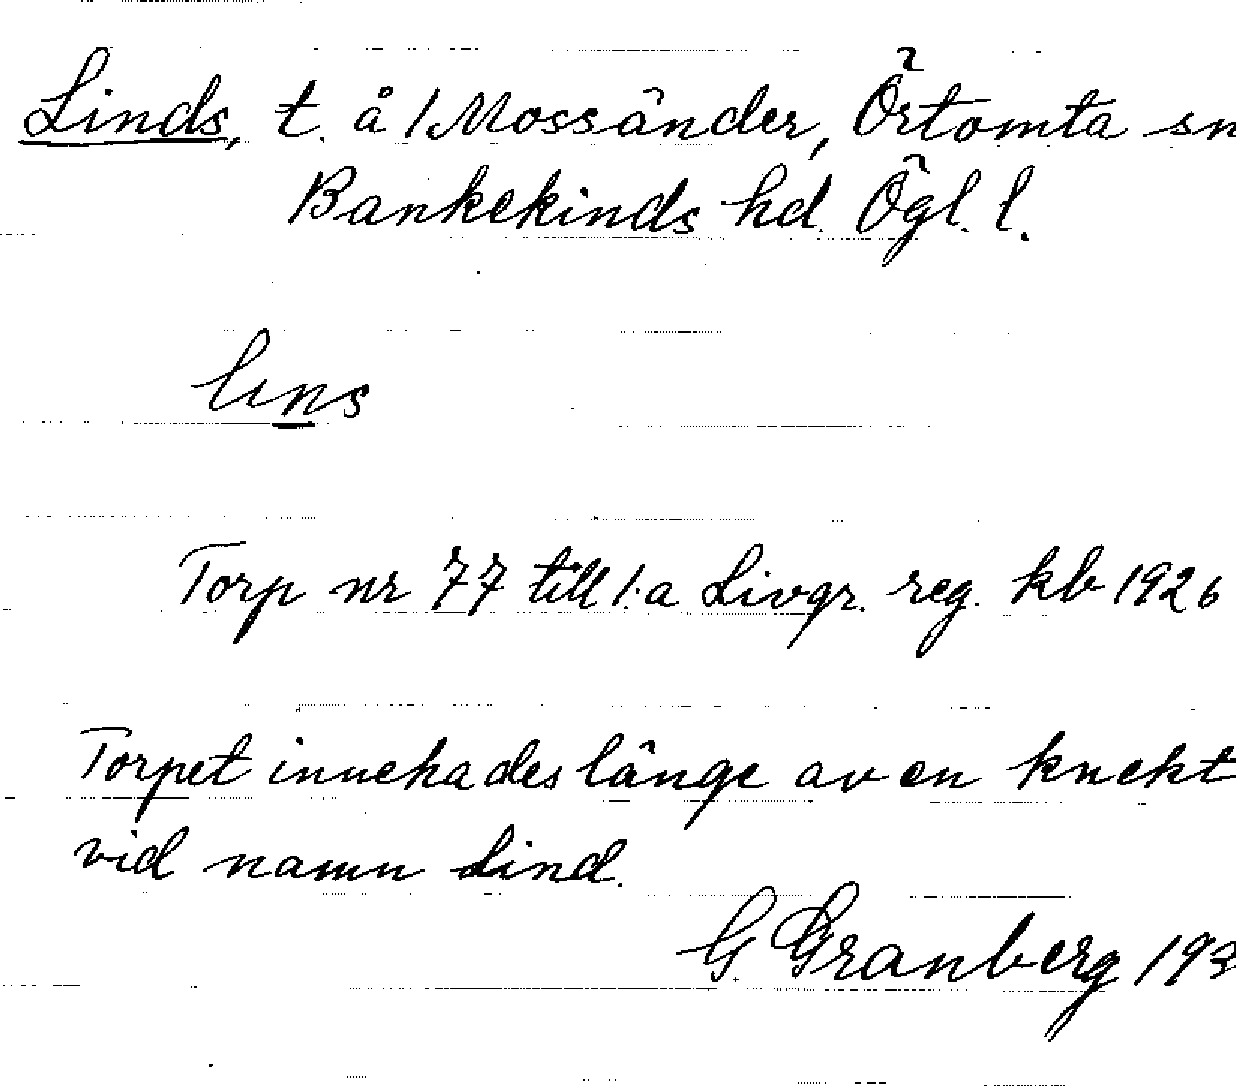 Linds, t. å 1 Mossänder, Örtomta sn
Bankekinds hd. Ögl. l.
lins
Torp nr 77 till 1:a Livgr. reg. kb 1926
Torpet innehades länge av en knekt
vid namn Lind.
G. Granberg 193